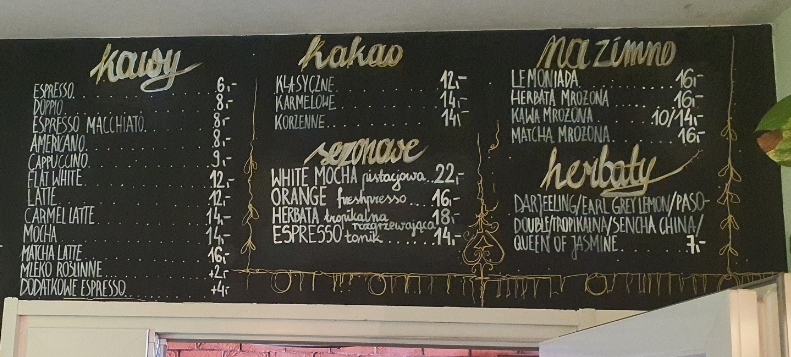 kawy
ESPRESSO 6,-
DOPPIO 8,-
ESPRESSO MACCHIATO 8,-
AMERICANO 8,-
CAPPUCCINO 9,-
FLAT WHITE 12,-
LATTE 12,-
CARMEL LATTE 14,-
MOCHA 14,-
MATCHA LATTE 16,-
MLEKO ROŚLINNE +2,-
DODATKOWE ESPRESSO +4,-
kakao
KLASYCZNE 12,-
KARMELOWE 14,-
KORZENNE 14,-
sezonowe
WHITE MOCHA pistacjowa 22,-
ORANGE freshpresso 16,-
HERBATA tropikalna 18,-
rozgrzewająca
ESPRESSO tonik 14,-
na zimno
LEMONIADA 16,-
HERBATA MROŻONA 16,-
KAWA MROŻONA 10/14,-
MATCHA MROŻONA 16,-
herbaty
DARJEELING/EARL GREY LEMON/PASO-
DOUBLE/TROPIKALNA/SENCHA CHINA/
QUEEN OF JASMINE 7,-